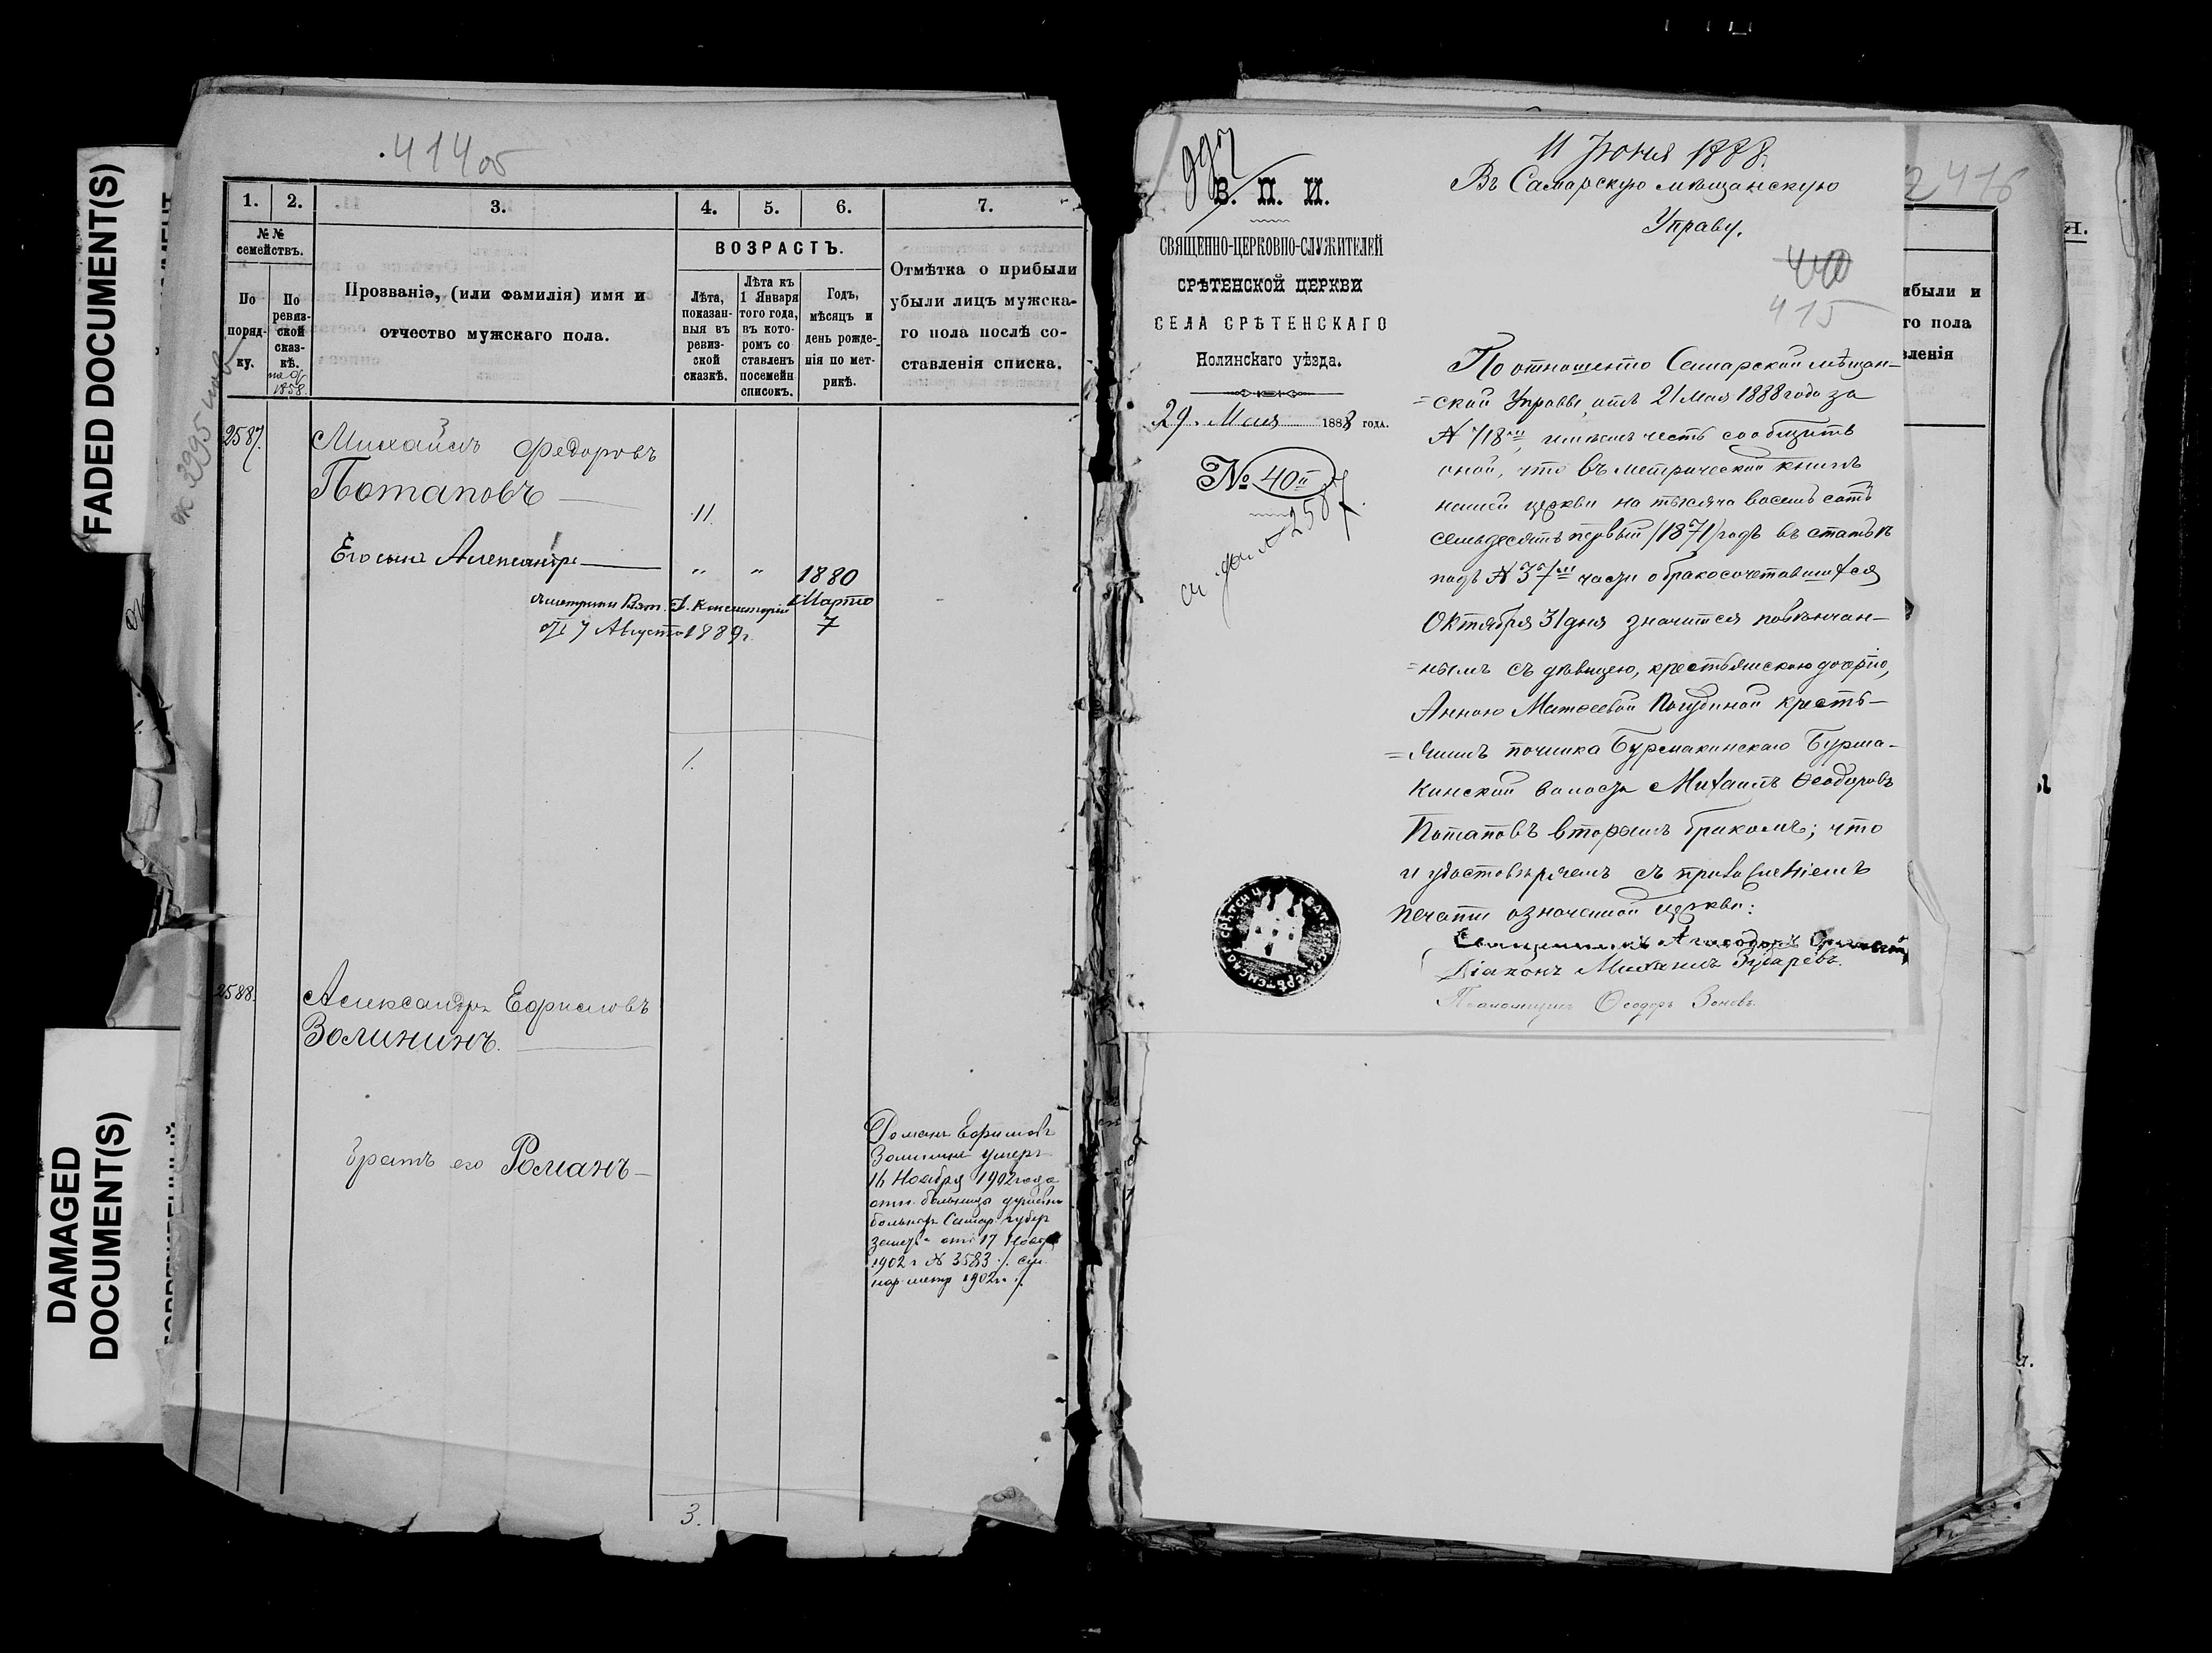 FADED DOCUMENT(S)
DAMAGED
DOCUMENT(S)
414 об
1.
2.
3.
4.
5.
6.
7.
№№ семействъ.
По порядку.
По ревизской сказкѣ.
1858.
Прозваніе, (или фамилія) имя и
отчество мужскаго пола.
ВОЗРАСТЪ.
Лѣта, показанныя въ ревизской сказкѣ.
Лѣта къ 1 Января того года, въ которомъ составленъ посемейн. списокъ.
Годъ, мѣсяцъ и день рожденія по метрикѣ.
Отмѣтка о прибыли
убыли лицъ мужска-
го пола послѣ со-
ставленія списка.
2587.
Михаилъ Федоровъ
Потаповъ
11.
Его сынъ Александръ
" " 1880
Марта
7
метрики Вят. Д. Консисторіи
отъ 7 Августа 1889 г.
1.
2588.
Александръ Ефимовъ
Золининъ.
братъ его Романъ
Романъ Ефимовъ
Золининъ умеръ
16 Ноября 1902 года
отн. больницы душевно
больныхъ Самар. губер
земст. отъ 17 Ноября
1902 г № 3583 /. см.
нар. метр 1902 г. /.
3.
997
В. П. И.
СВЯЩЕННО-ЦЕРКОВНО-СЛУЖИТЕЛЕЙ
СРѢТЕНСКОЙ ЦЕРКВИ
СЕЛА СРѢТЕНСКАГО
Нолинскаго уѣзда.
29 Мая 1888 года.
№ 40
2587
11 Іюня 1888 г.
Въ Самарскую мѣщанскую
Управу.
440
415
По отношенію Самарской мѣщан-
=ской Управы отъ 21 Мая 1888 года за
№ 718, имѣемъ честь сообщить
оной, что въ метрической книгѣ
нашей церкви на тысяча восемь сотъ
семьдесятъ первый /1871/ годъ въ статьѣ
подъ № 37 части о бракосочетавшихся
Октября 31 дня значится повѣнчан-
=нымъ съ дѣвицею, крестьянскою дочерью,
Анною Матѳеевой Погудиной кресть-
=янинъ починка Бурмакинскаго Бурма-
кинской волости Михаилъ Ѳеодоровъ
Потаповъ вторымъ бракомъ; что
и удостовѣряемъ съ приложеніемъ
печати означенной церкви:
Священникъ
Діаконъ Михаилъ Зубаревъ.
Псаломщикъ Ѳеодоръ Зоновъ.
416
ибыли и
го пола
вленія